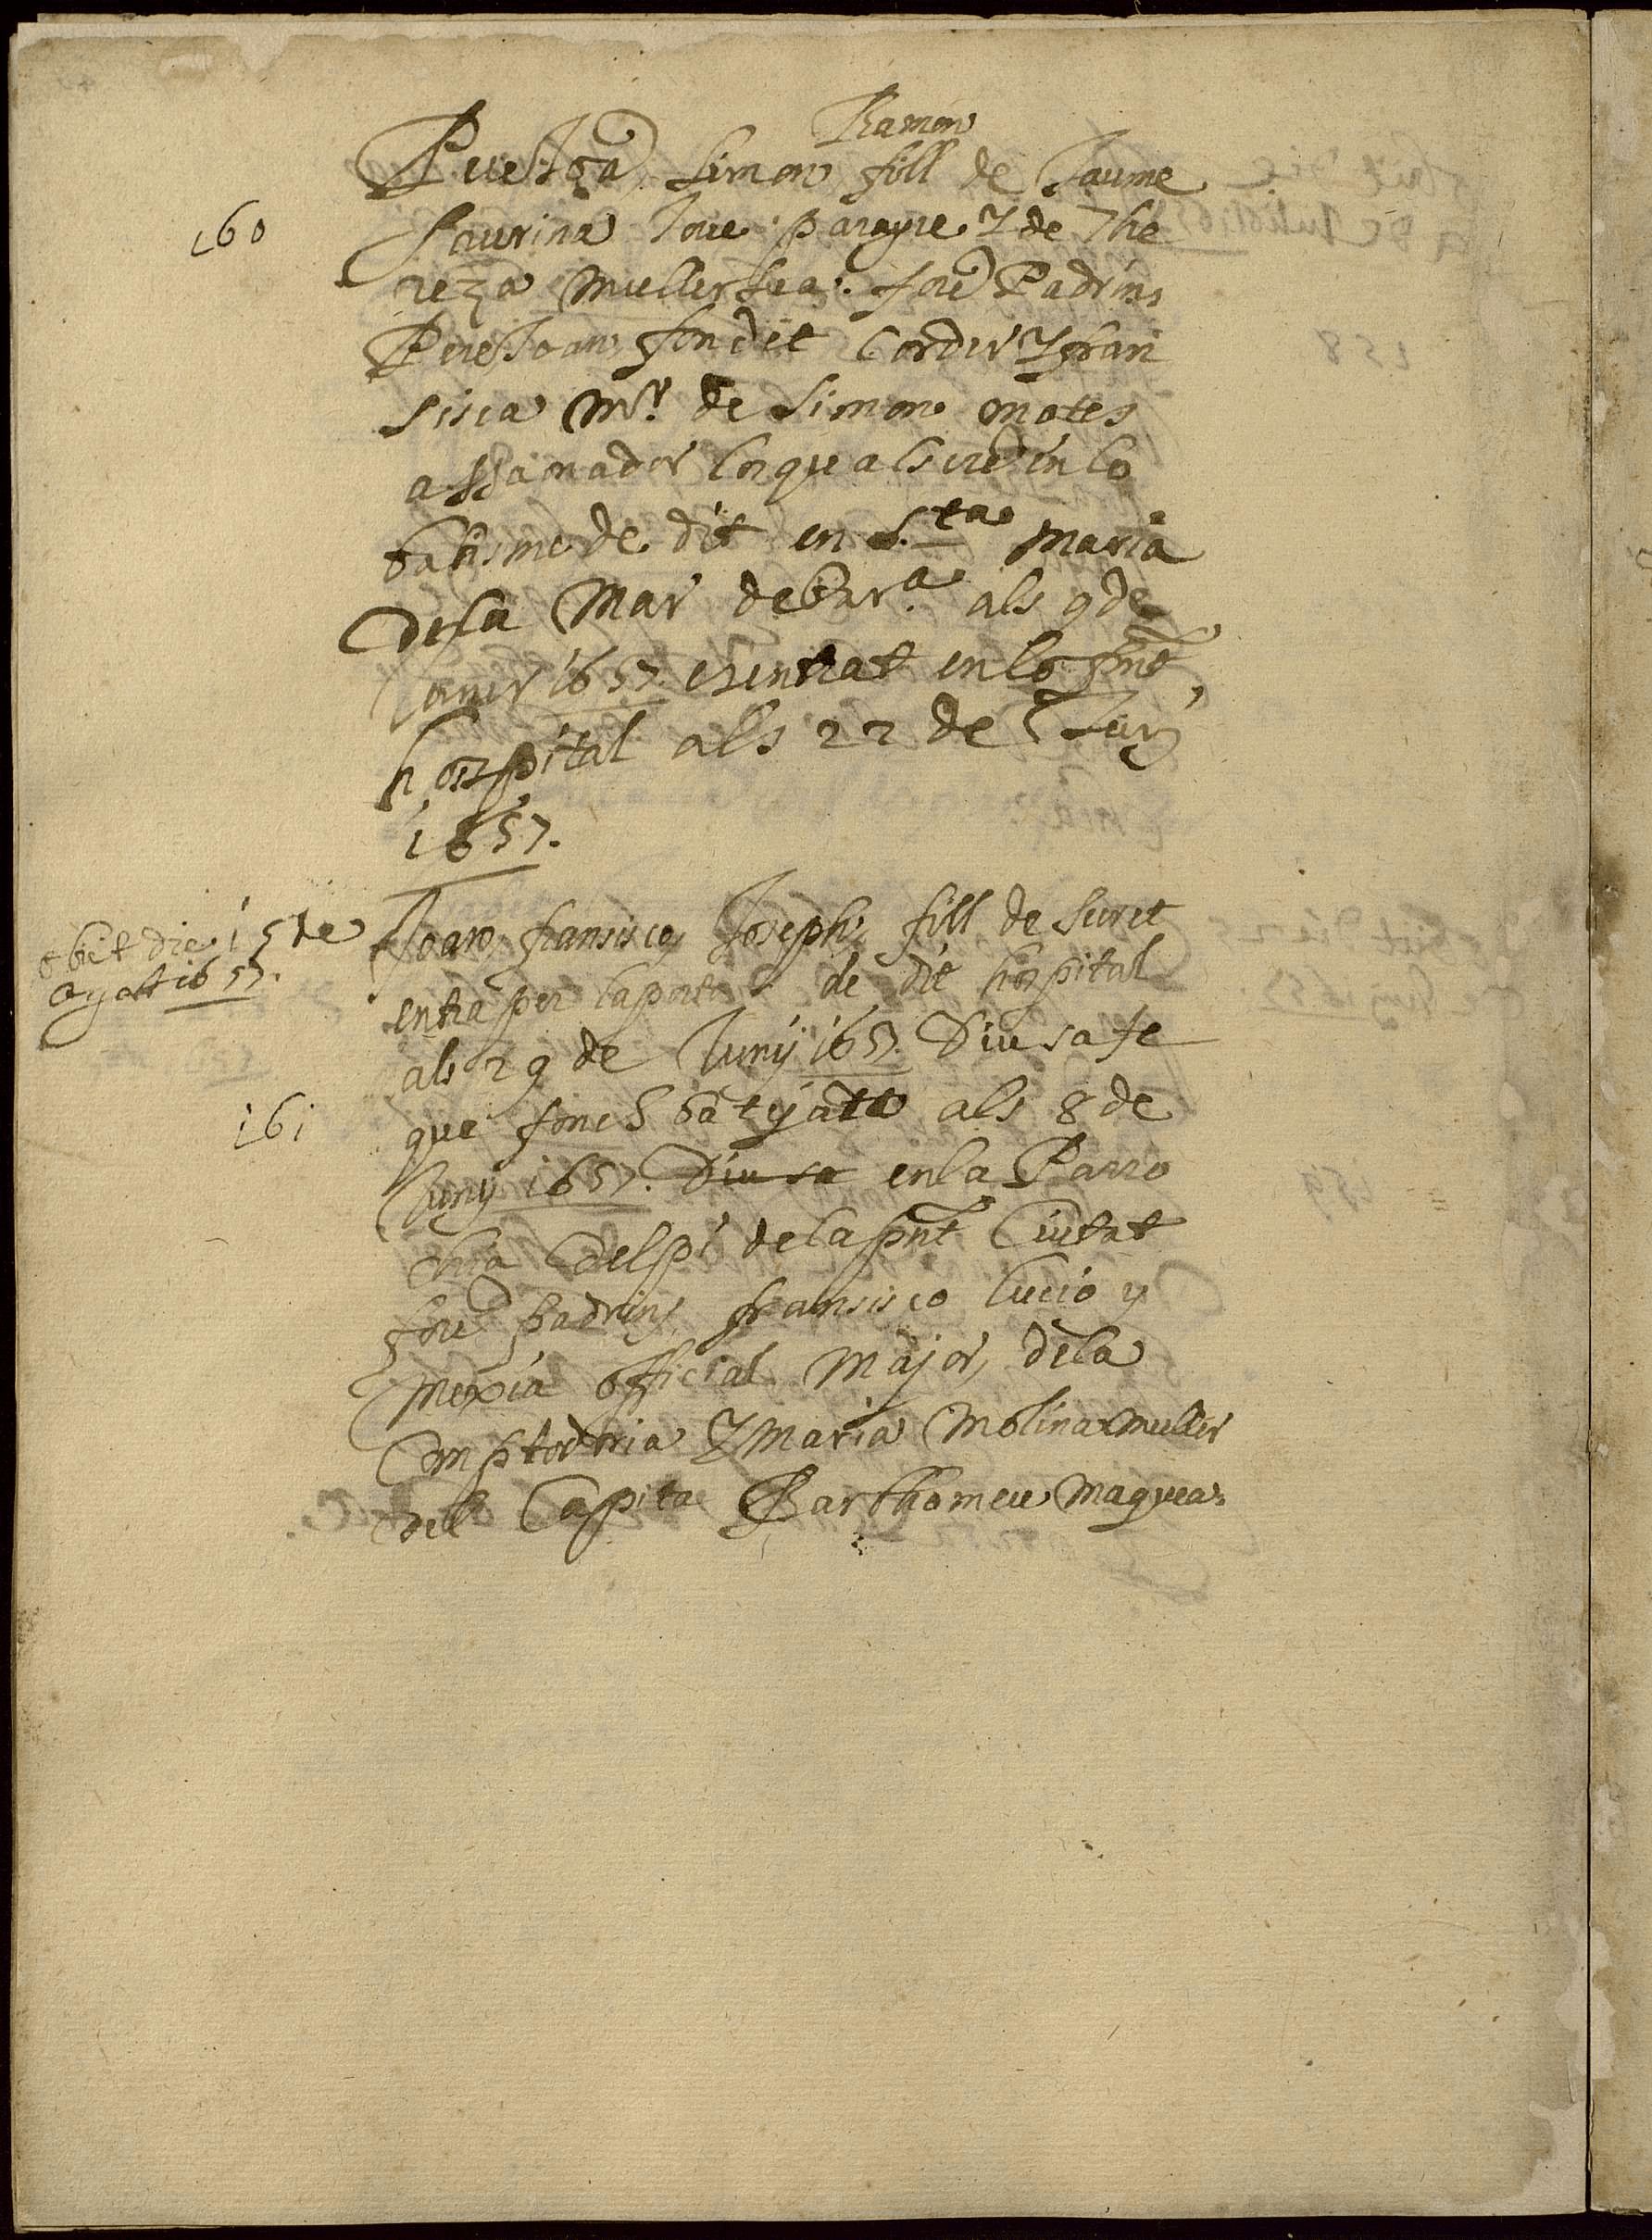 Ramon
Pere Joã Simon fill de Jaume
160
Saurina Joue parayre Y de The
reza muller sua. forẽ Padrins
Pere Joan fondit Corder Y fran
sisca Mr. de Simon motes
assaonador los quals cõ en lo
batisme de dit en S.ta Maria
dela Mar de Bar.a als 9 de
Janer 1657 es entrat en lo pnt
hospital als 22 de Juny
1657.
obiit die 15 de
agost 1657.
Joan fransisco Joseph fill de Secret
entra per la porta de dit hospital
als 29 de Junij 1657. Diu sa fe
161
que fonc batejat als 8 de
Junij 1657. Diu sa en la Parro
chia del pi dela pnt Ciutat
forẽ padrins fransisco Lucio y
mexia official Major dela
Comptadoria Y Maria Molina muller
del Capita Barthomeu maquea.